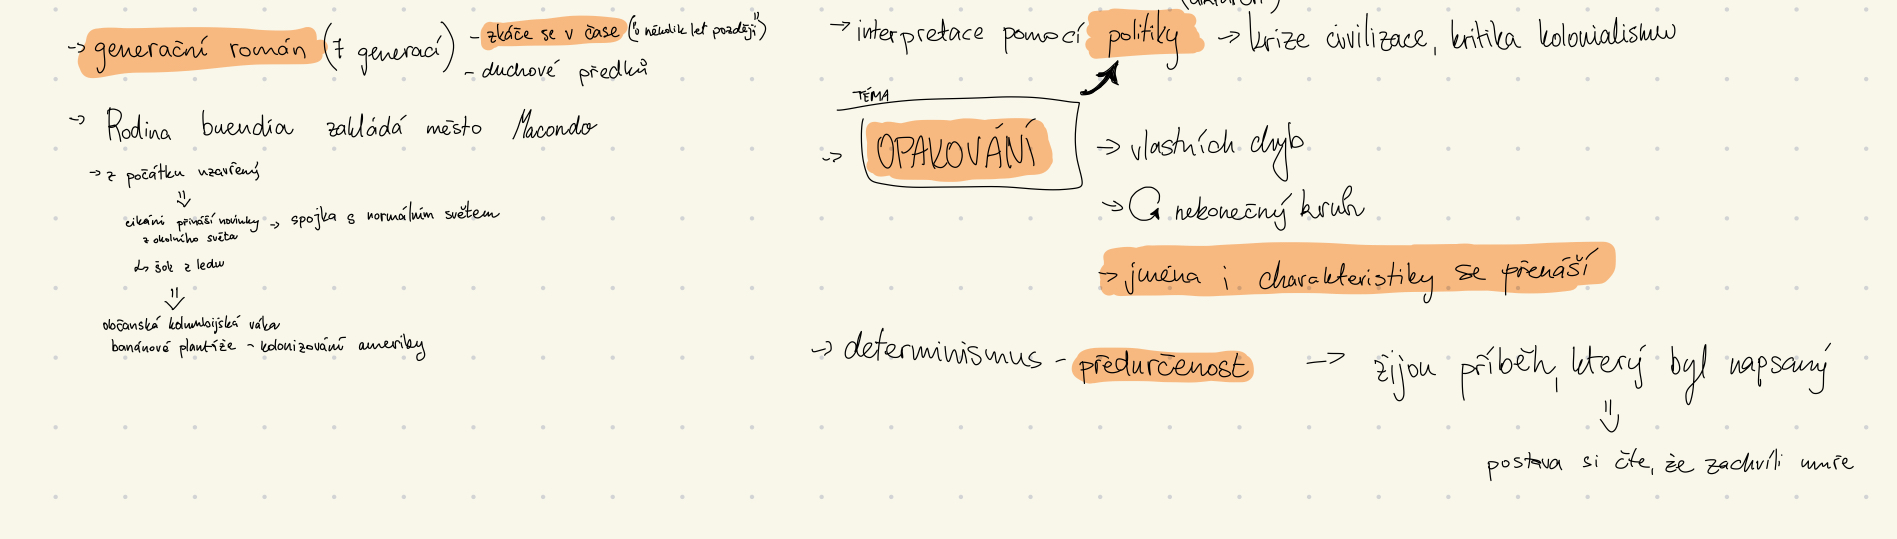 → generační román (7 generací) - zkáče se v čase ("o několik let později")
- duchové předků
→ Rodina buendia zakládá město Macondo
→ z počátku uzavřený
⇓
cikáni přináší novinky → spojka s normálním světem
z okolního světa
↳ šok z ledu
⇓
občanská kolumbijská válka
banánové plantáže - kolonizování ameriky
→ interpretace pomocí politiky → krize civilizace, kritika kolonialismu
TÉMA
→ OPAKOVÁNÍ
→ vlastních chyb
→ nekonečný kruh
→ jména i charakteristiky se přenáší
→ determinismus - předurčenost → žijou příběh, který byl napsaný
⇓
postava si čte, že zachvíli umře